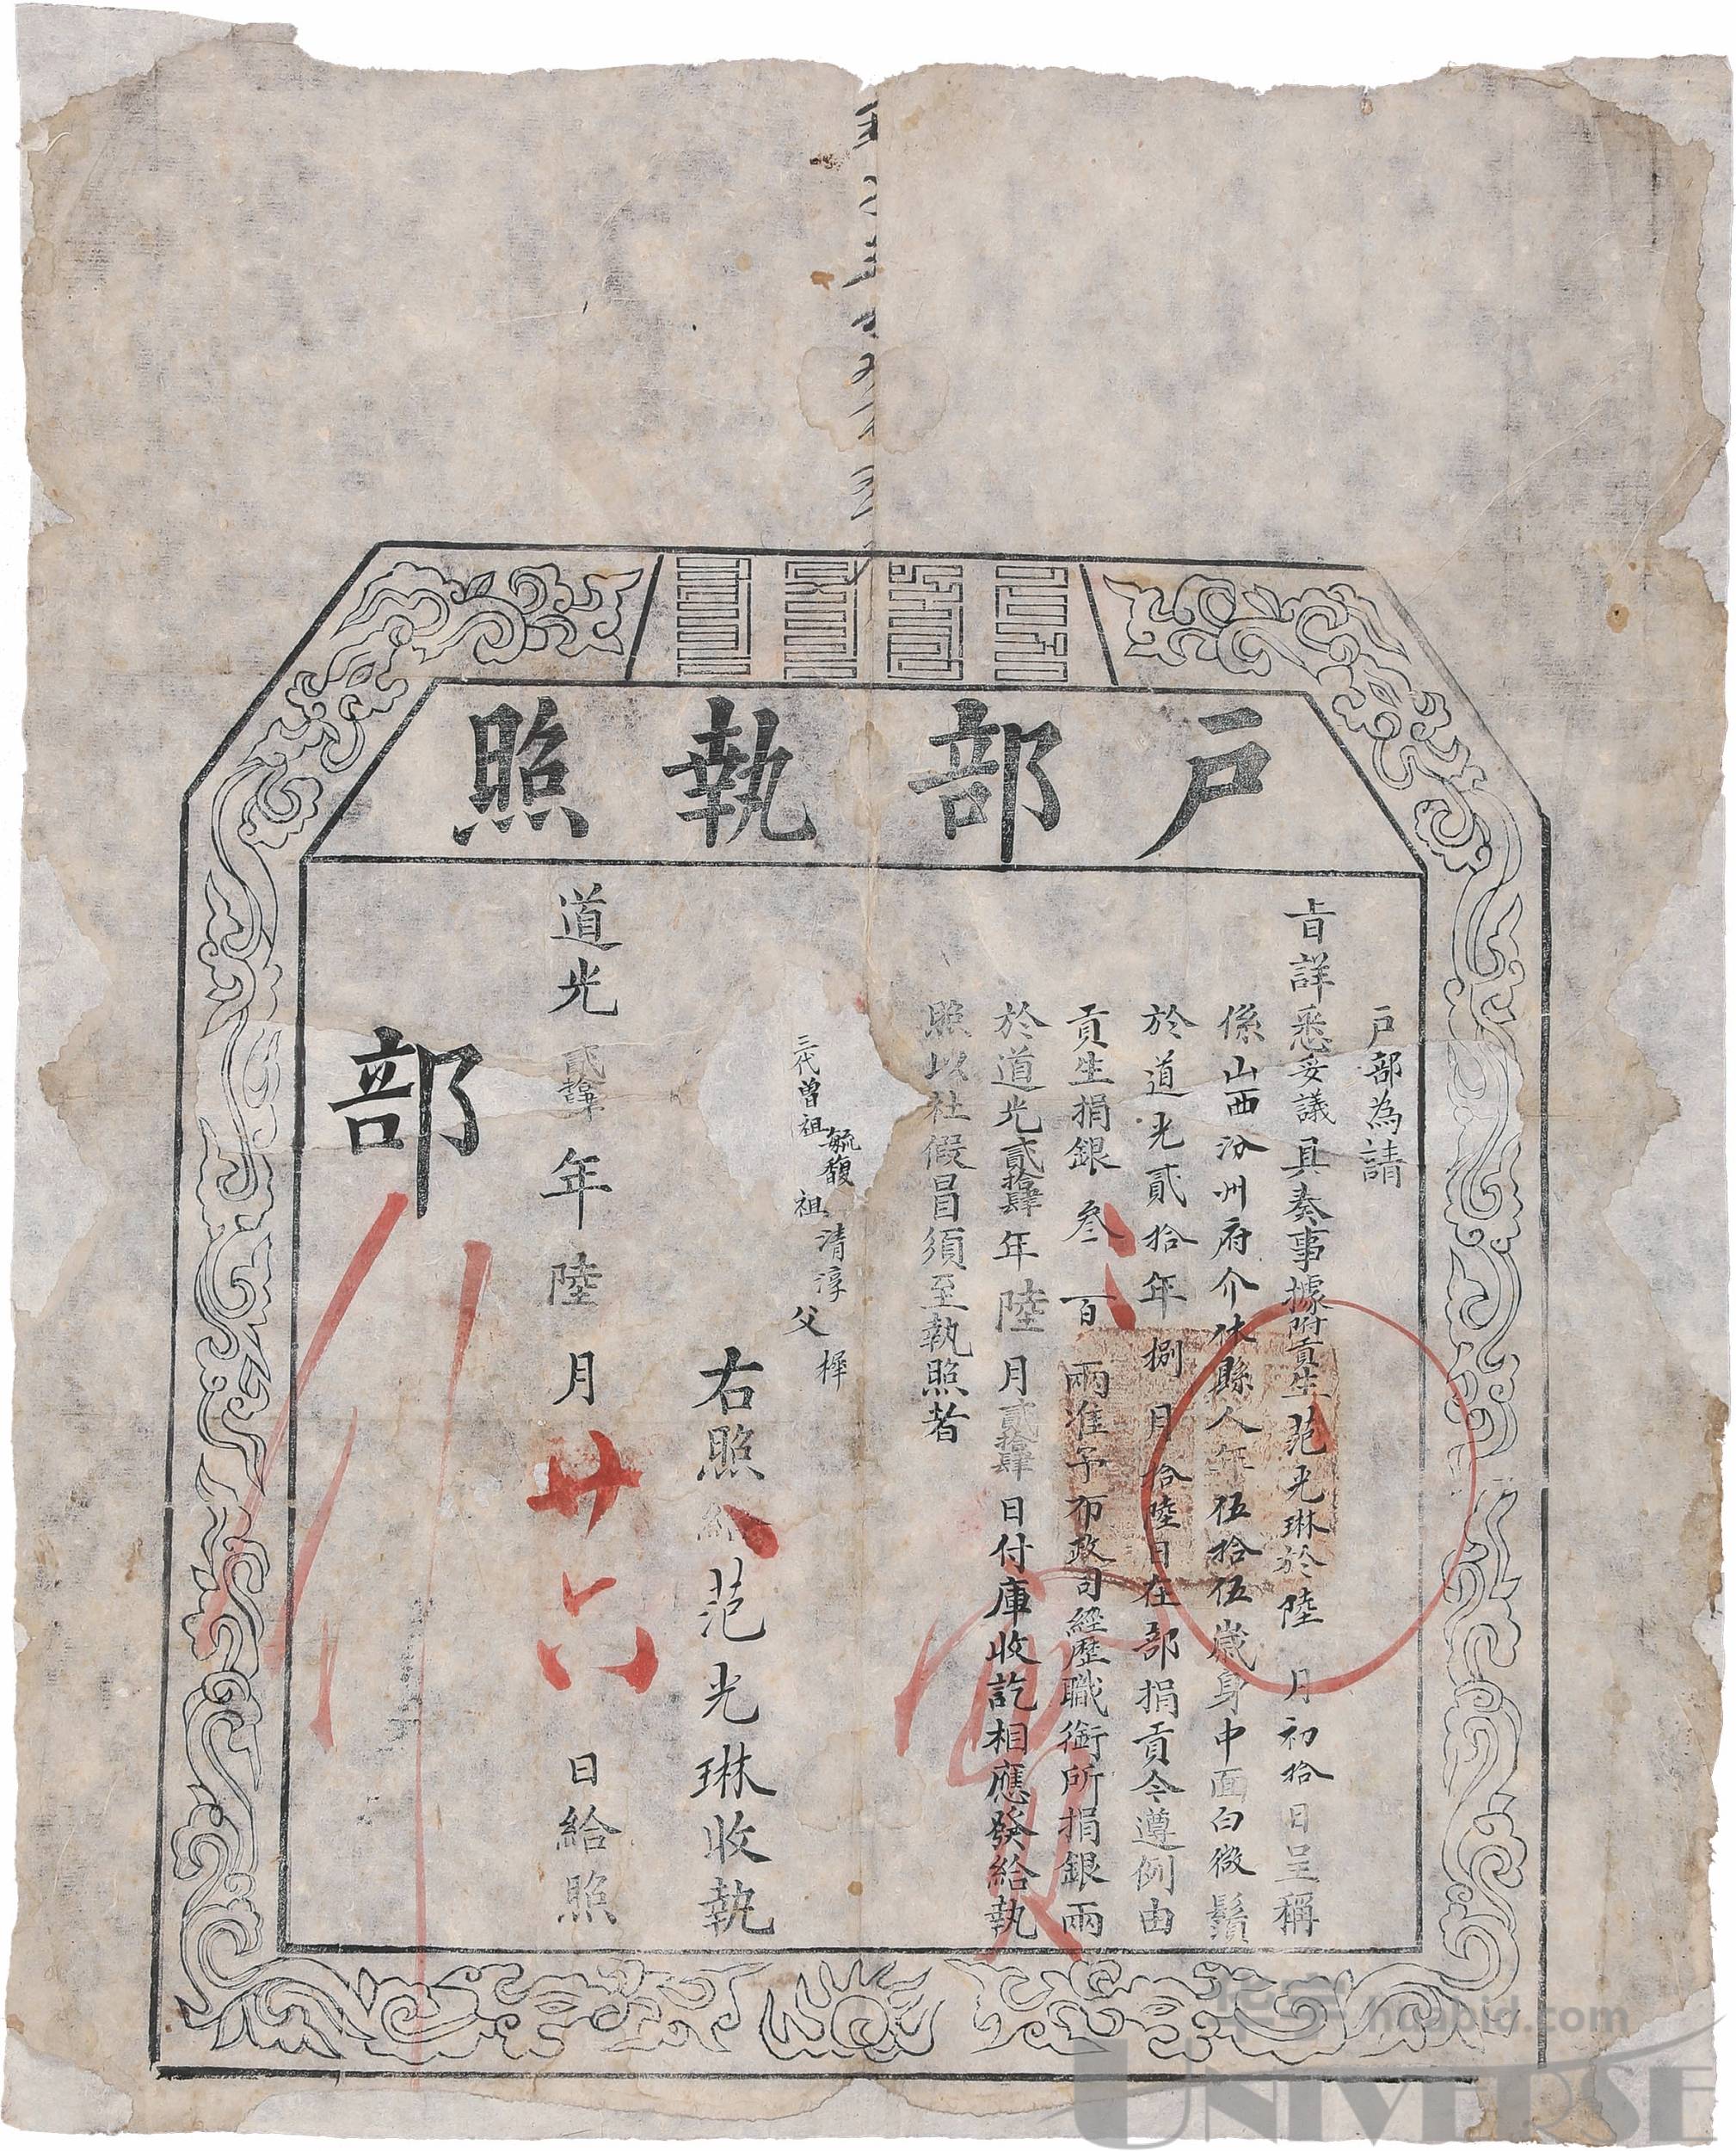 戶部執照
戶部為請
旨詳悉妥議具奏事據附貢生范光琳於陸月初拾日呈稱
係山西汾州府介休縣人年伍拾伍歲身中面白微鬚
於道光貳拾年捌月拾陸日在部捐貢今遵例由
貢生捐銀叁百兩准予布政司經歷職銜所捐銀兩
於道光貳拾肆年陸月貳拾肆日付庫收訖相應發給執
照以杜假冒須至執照者
三代曾祖毓馥祖清淳父樨
右照給范光琳收執
道光貳拾肆年陸月廿六日給照
部
huabid.com
UNIVERSE